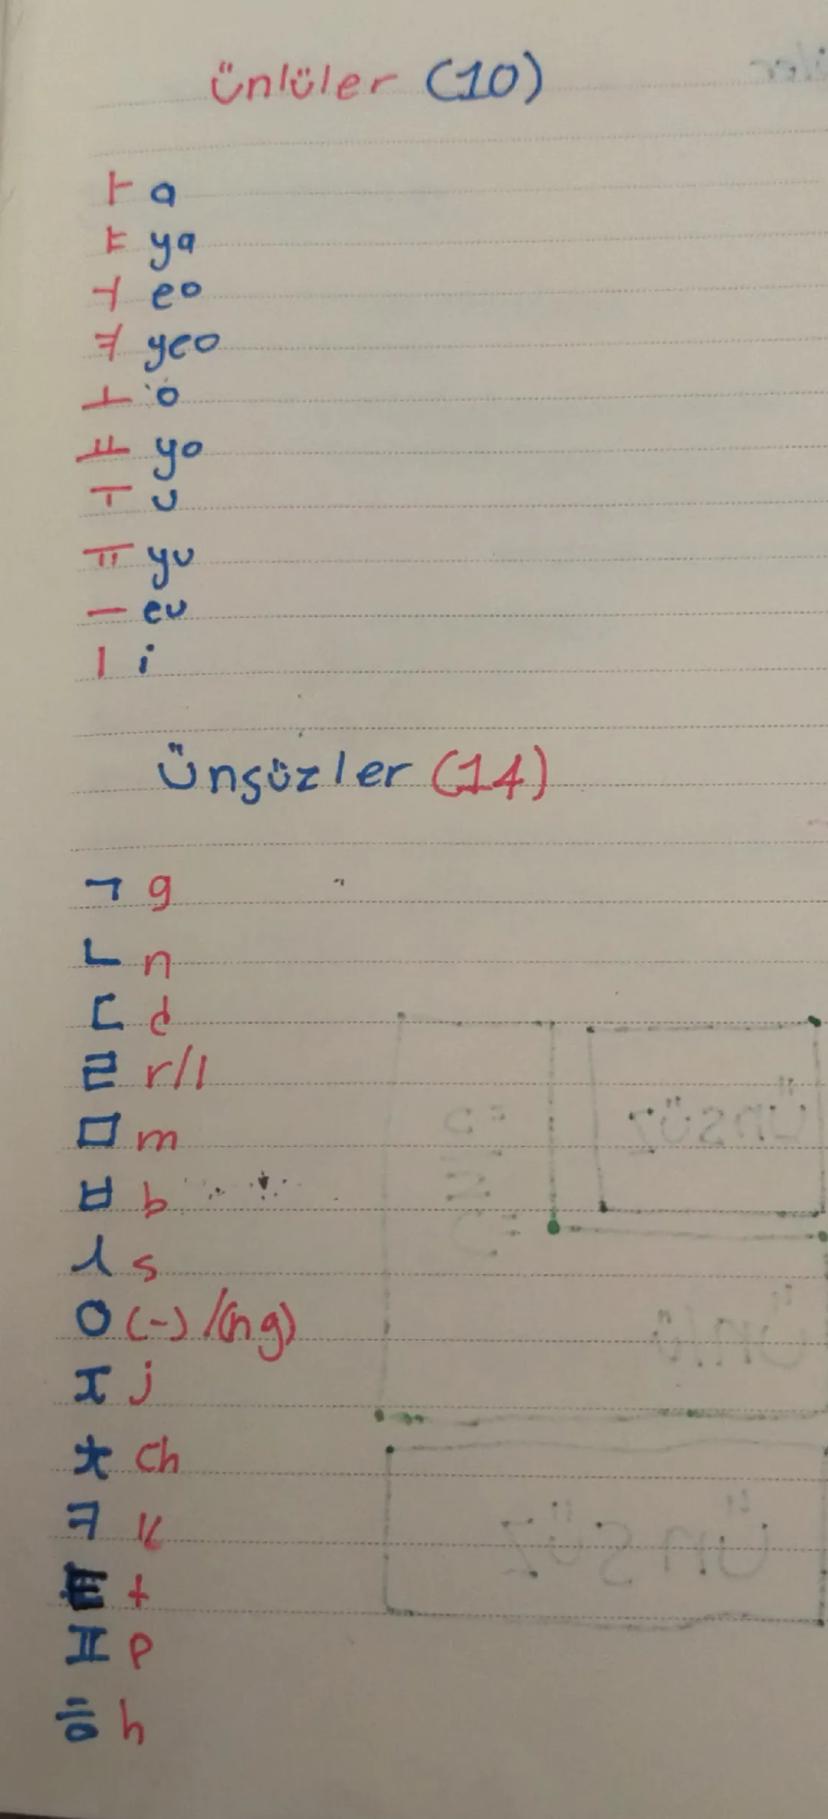 ünlüler (10)
ㅏ a
ㅑ ya
ㅓ eo
ㅕ yeo
ㅗ o
ㅛ yo
ㅜ u
ㅠ yu
ㅡ eu
ㅣ i
Ünsüzler (14)
ㄱ g
ㄴ n
ㄷ d
ㄹ r/l
ㅁ m
ㅂ b
ㅅ s
ㅇ (-) /(ng)
ㅈ j
ㅊ ch
ㅋ k
ㅌ t
ㅍ p
ㅎ h
Ünsüz
Ünlü
Ünsüz